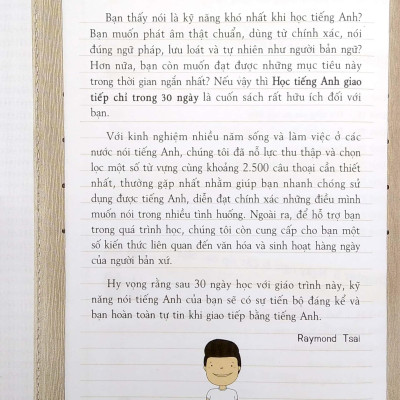 Bạn thấy nói là kỹ năng khó nhất khi học tiếng Anh?
Bạn muốn phát âm thật chuẩn, dùng từ chính xác, nói
đúng ngữ pháp, lưu loát và tự nhiên như người bản ngữ?
Hơn nữa, bạn còn muốn đạt được những mục tiêu này
trong thời gian ngắn nhất? Nếu vậy thì Học tiếng Anh giao
tiếp chỉ trong 30 ngày là cuốn sách rất hữu ích đối với
bạn.
Với kinh nghiệm nhiều năm sống và làm việc ở các
nước nói tiếng Anh, chúng tôi đã nỗ lực thu thập và chọn
lọc một số từ vựng cùng khoảng 2.500 câu thoại cần thiết
nhất, thường gặp nhất nhằm giúp bạn nhanh chóng sử
dụng được tiếng Anh, diễn đạt chính xác những điều mình
muốn nói trong nhiều tình huống. Ngoài ra, để hỗ trợ bạn
trong quá trình học, chúng tôi còn cung cấp cho bạn một
số kiến thức liên quan đến văn hóa và sinh hoạt hàng ngày
của người bản xứ.
Hy vọng rằng sau 30 ngày học với giáo trình này, kỹ
năng nói tiếng Anh của bạn sẽ có sự tiến bộ đáng kể và
bạn hoàn toàn tự tin khi giao tiếp bằng tiếng Anh.
Raymond Tsai